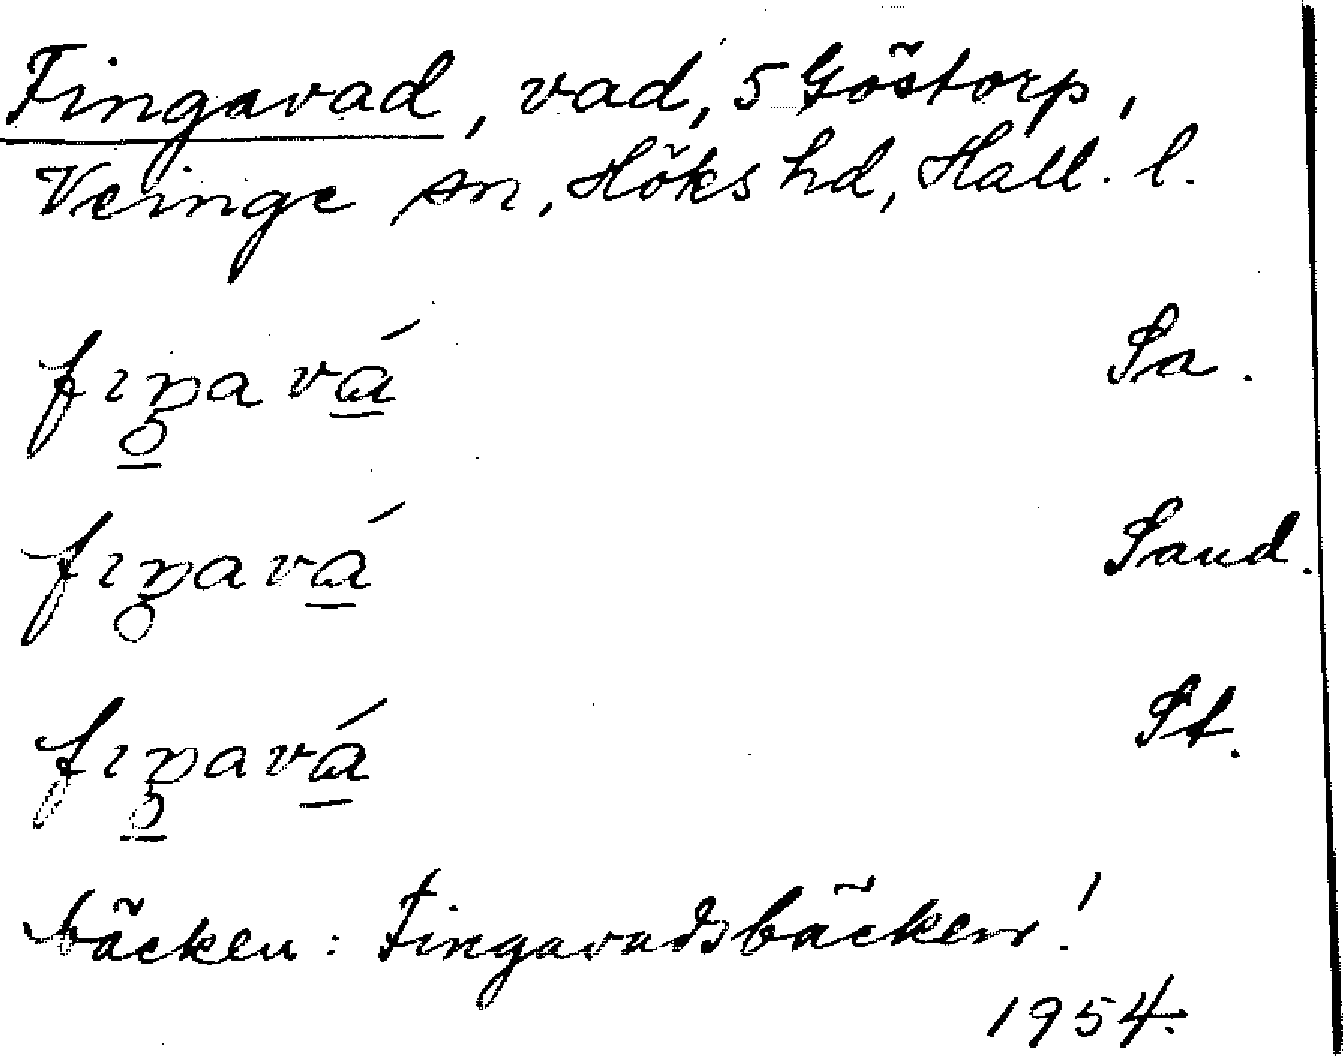 Fingavad, vad, 5 Göstorp,
Veinge sn, Höks hd, Hall. l.
fıŋavá Sa.
fıŋavá Sand.
fıŋavá St.
bäcken: Fingavadsbäcken!
1954.